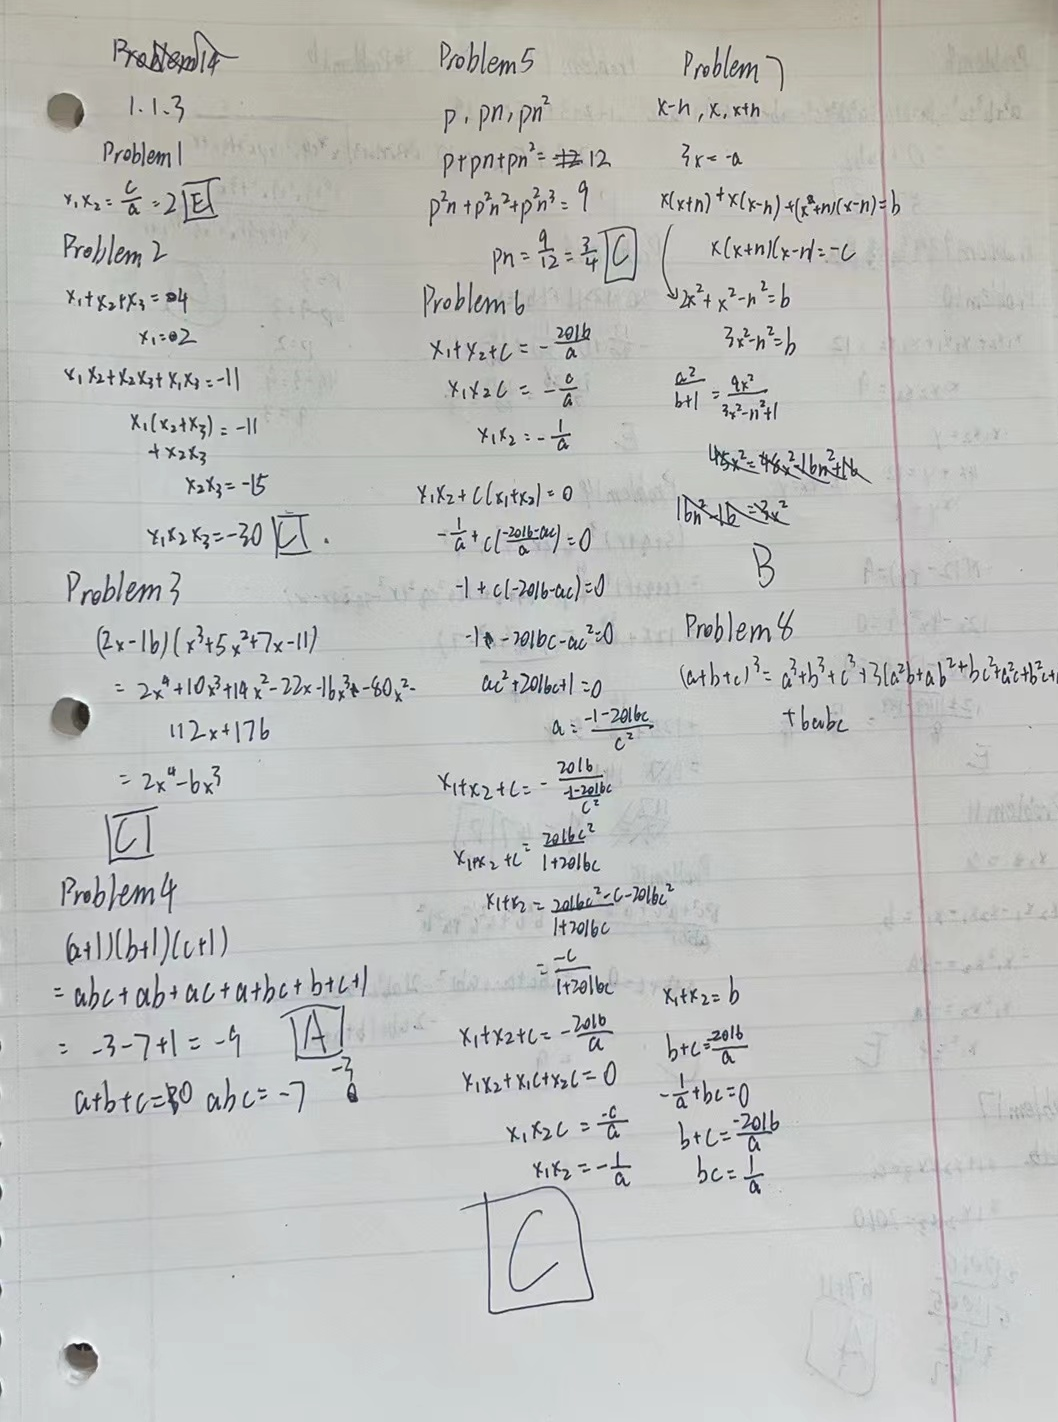 Problem 14
1.1.3
Problem 1
x₁x₂ = c/a = 2 E
Problem 2
x₁+x₂+x₃=4
x₁=2
x₁x₂+x₂x₃+x₁x₃=-11
x₁(x₂+x₃) = -11
+x₂x₃
x₂x₃=-15
x₁x₂x₃=-30 C.
Problem 3
(2x-16)(x³+5x²+7x-11)
= 2x⁴+10x³+14x²-22x-16x³-80x²-
112x+176
= 2x⁴-6x³
C
Problem 4
(a+1)(b+1)(c+1)
= abc+ab+ac+a+bc+b+c+1
= -3-7+1=-9 A
a+b+c=0 abc=-7 -3
Problem 5
p, pn, pn²
p+pn+pn²= 12
p²n+p²n²+p²n³=9
pn=9/12=3/4 C
Problem 6
x₁+x₂+c=-2016/a
x₁x₂c=-c/a
x₁x₂=-1/a
x₁x₂+c(x₁+x₂)=0
-1/a+c((-2016-ac)/a)=0
-1+c(-2016-ac)=0
-1-2016c-ac²=0
ac²+2016c+1=0
a=(-1-2016c)/c²
x₁+x₂+c=-2016/((-1-2016c)/c²)
x₁+x₂+c=2016c²/(1+2016c)
x₁+x₂=(2016c²-c-2016c²)/(1+2016c)
=-c/(1+2016c)
x₁+x₂+c=-2016/a
x₁x₂+x₁c+x₂c=0
x₁x₂c=-c/a
x₁x₂=-1/a
x₁+x₂=b
b+c=-2016/a
-1/a+bc=0
b+c=-2016/a
bc=1/a
C
Problem 7
x-n, x, x+n
3x=-a
x(x+n)+x(x-n)+(x+n)(x-n)=b
x(x+n)(x-n)=-c
2x²+x²-n²=b
3x²-n²=b
a²/(b+1)=9x²/(3x²-n²+1)
45x²=48x²-16n²+16
16n²-16=3x²
B
Problem 8
(a+b+c)³=a³+b³+c³+3(a²b+ab²+bc²+a²c+b²c+
+6abc